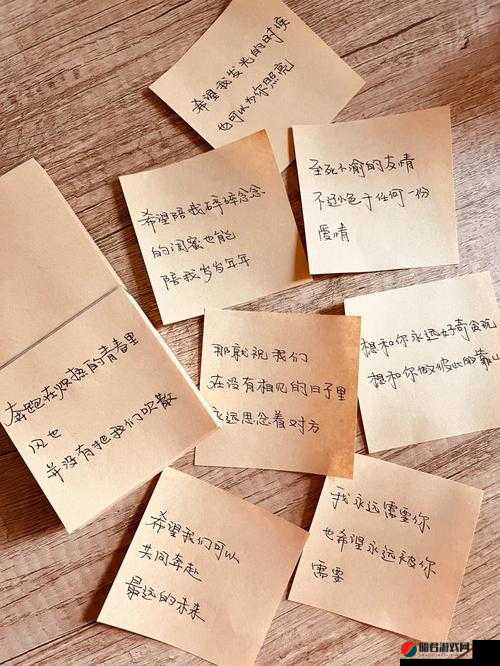 希望我发光的时候
也可以为你照亮
至死不渝的友情
不逊色于任何一份
爱情
希望陪我碎碎念念
的闺蜜也能
陪我岁岁年年
想和你永远好奇贪玩
想和你做彼此的靠山
那就祝我们
在没有相见的日子里
永远思念着对方
奔跑在炽热的青春里
风也
并没有把我们吹散
我永远需要你
也希望永远被你
需要
希望我们可以
共同奔赴
最远的未来
昭君游戏网